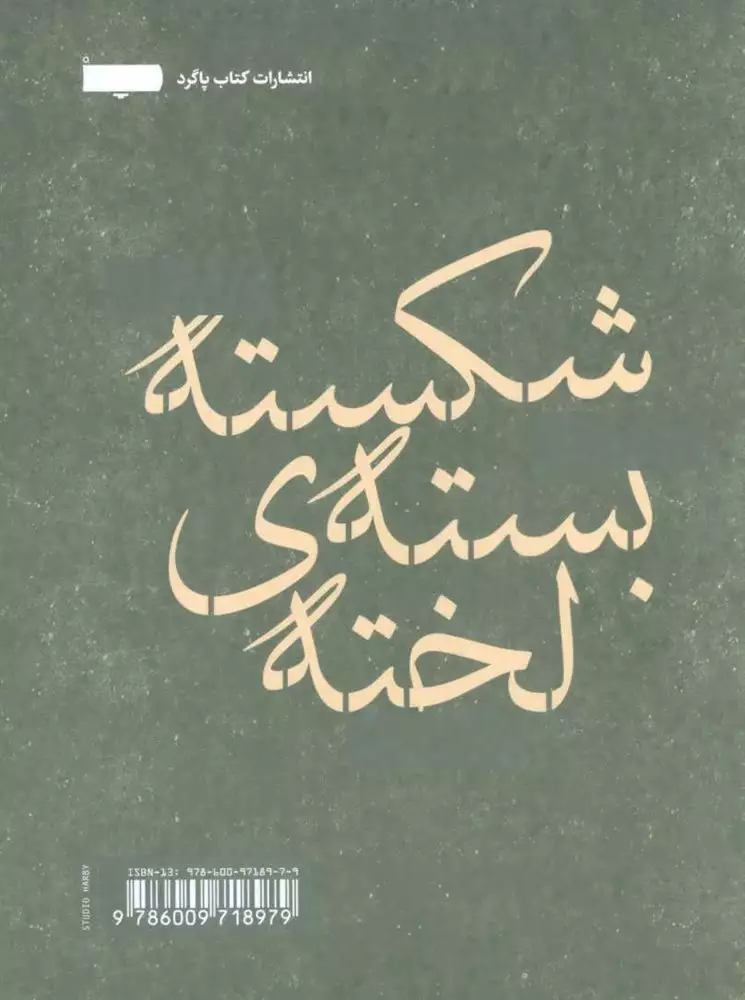 انتشارات کتاب پاگرد
شکسته
بسته‌ی
لخته
ISBN-13: 978-600-97189-7-9
9 786009 718979
STUDIO HARBY